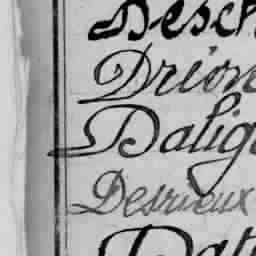 Desch
Drion
Dalig
Desrieux
Dat